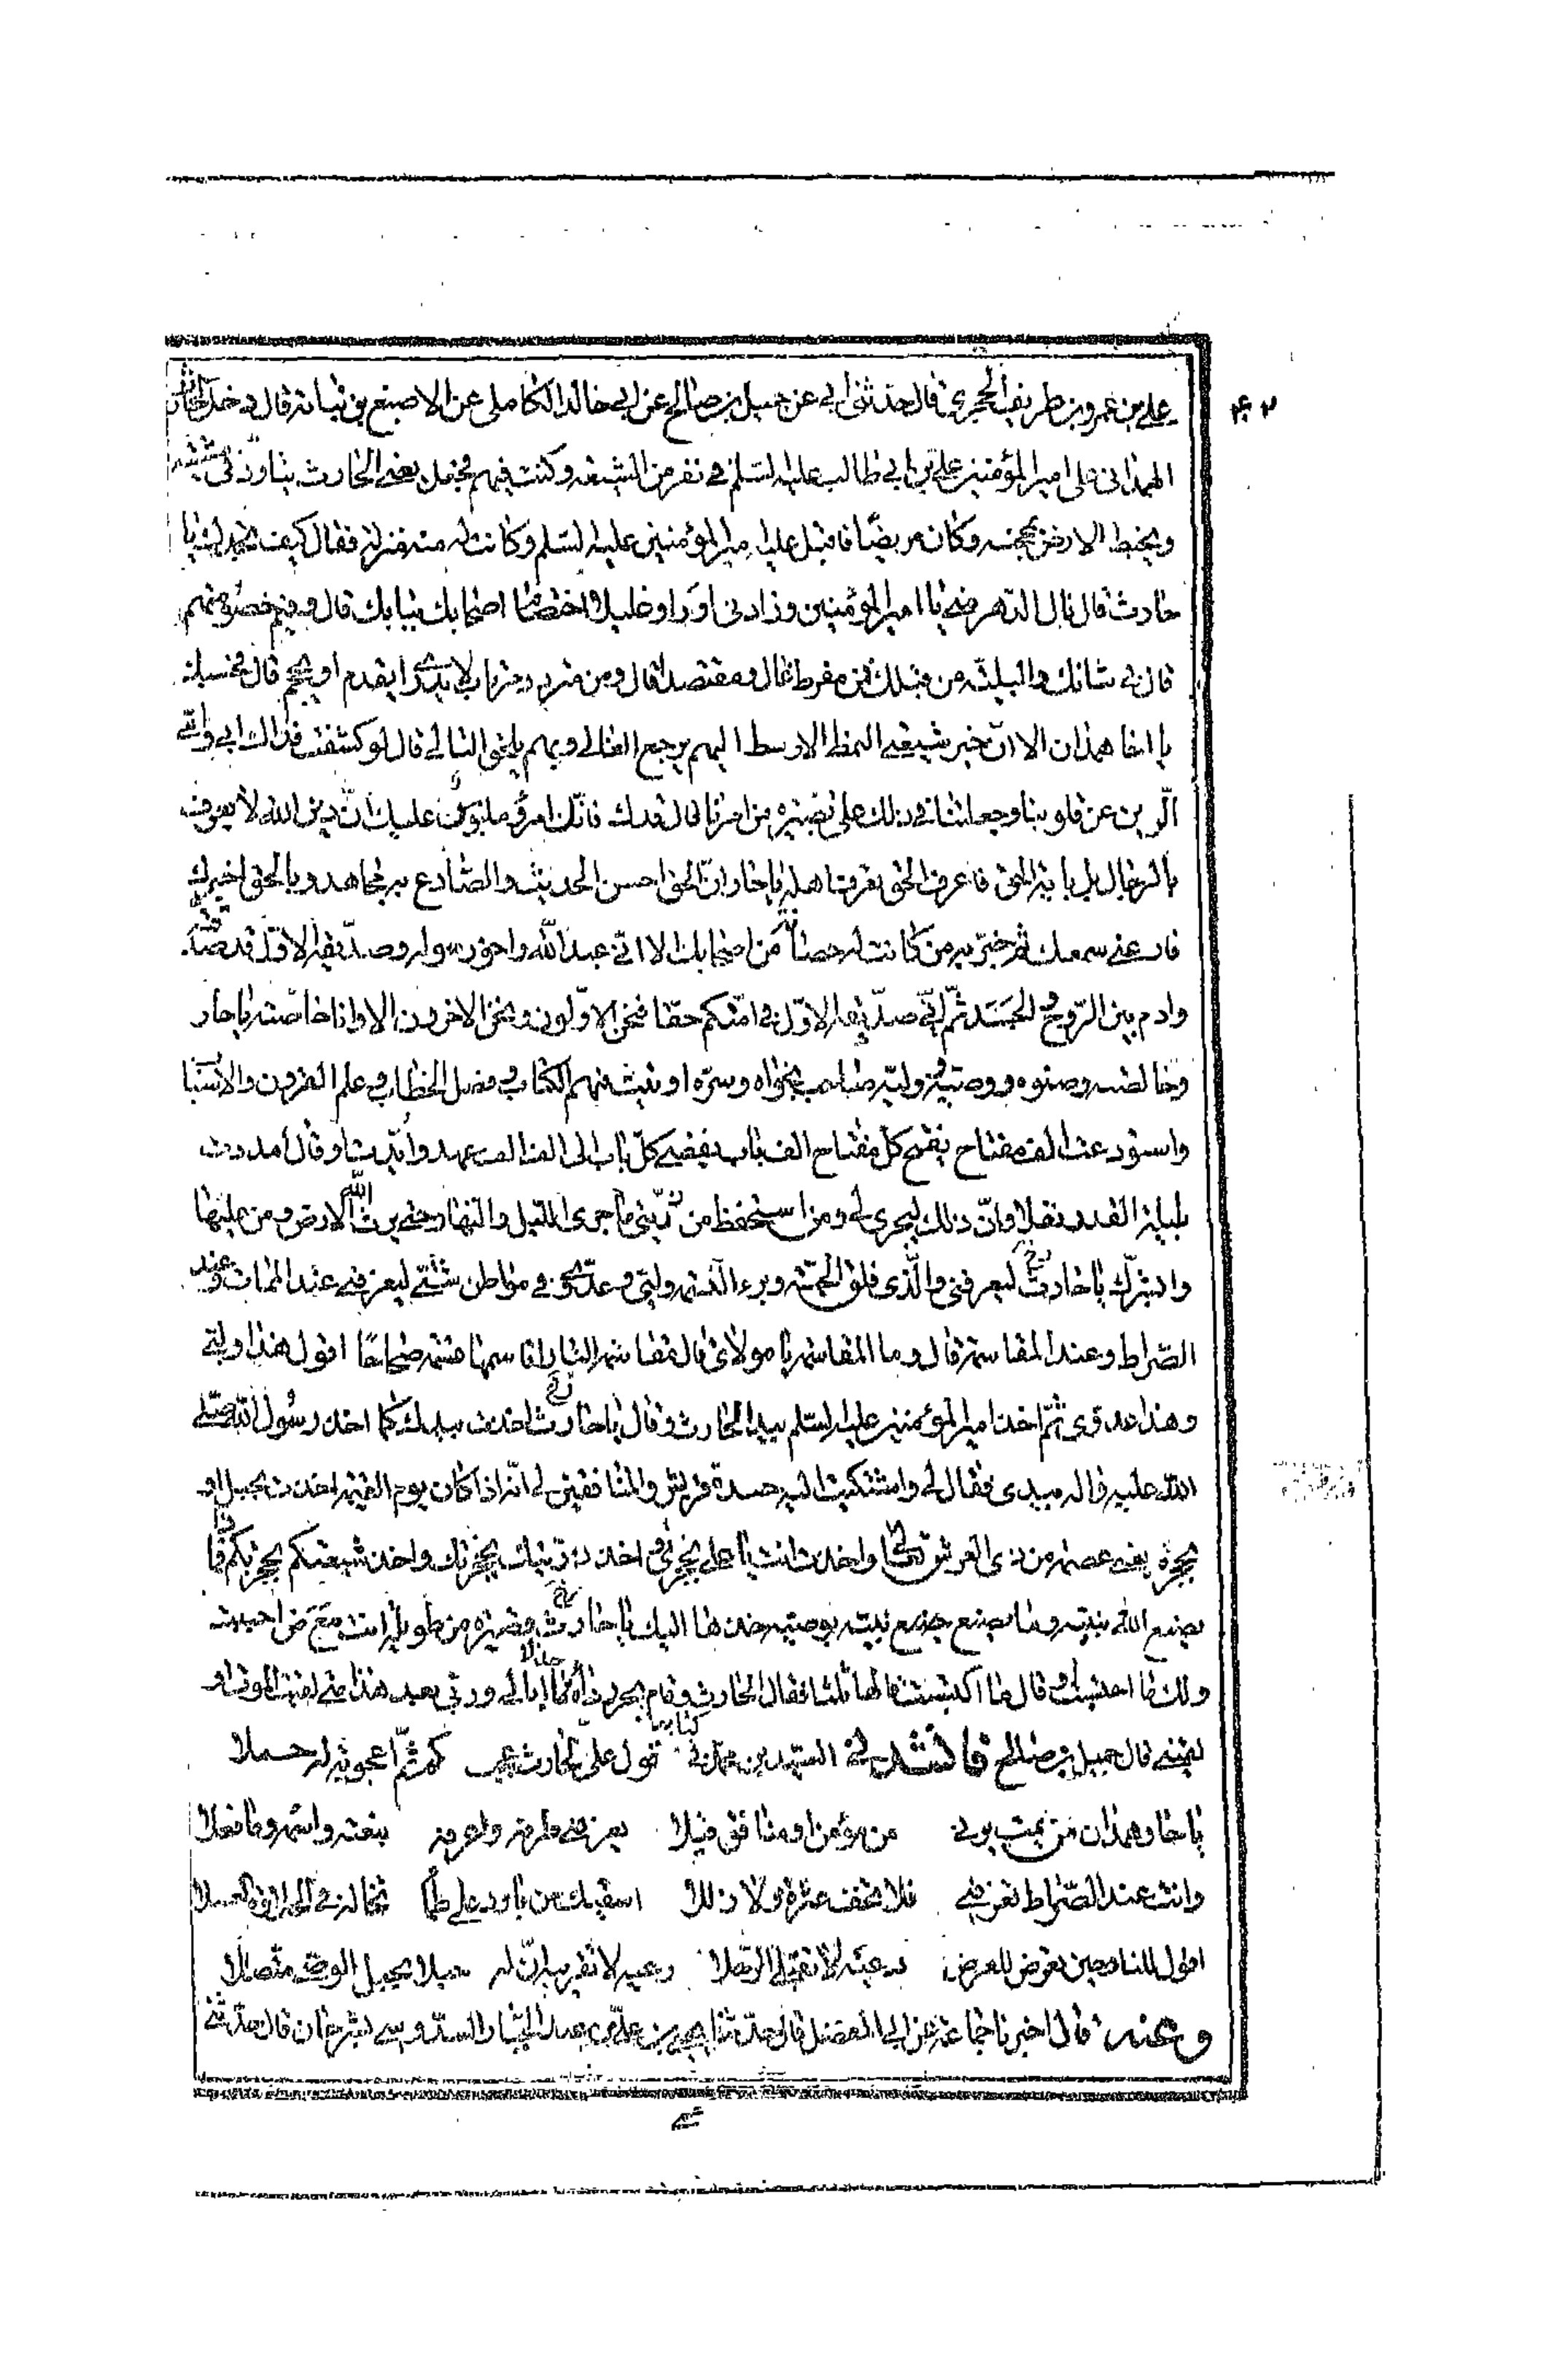 علي بن عمرو بن طريف الحجري قال حدثني أبي عن جميل بن صالح عن ابي خالد الكاملي عن الاصبغ بن نباتة قال دخل الحارث
الهمداني على امير المؤمنين علي بن ابي طالب عليه السلم في نفر من الشيعة وكنت فيهم فجعل يعني الحارث يتاود في مشيته
ويخبط الارض بمحجنه وكان مريضا فاقبل عليه امير المؤمنين عليه السلم وكانت له منه منزلة فقال كيف تجدك يا
حارث قال نال الدهر مني يا امير المؤمنين وزادني اوارا وغليلا اختصام اصحابك ببابك قال وفيم خصومتهم
قال في شانك والبلية من قبلك فمن مفرط غال ومقتصد قال ومن متردد مرتاب لا يدري ايقدم او يحجم قال فحسبك
يا اخا همدان الا ان خير شيعتي النمط الاوسط اليهم يرجع الغالي وبهم يلحق التالي قال لو كشفت فداك ابي وامي
الرين عن قلوبنا وجعلتنا في ذلك على بصيرة من امرنا قال قدك فانك امرؤ ملبوس عليك ان دين الله لا يعرف
بالرجال بل باية الحق فاعرف الحق تعرف اهله يا حار ان الحق احسن الحديث والصادع به مجاهد وبالحق اخبرك
فارعني سمعك ثم خبر به من كانت له حصاة من اصحابك الا اني عبد الله واخو رسوله وصديقه الاول قد صدقته
وادم بين الروح والجسد ثم اني صديقه الاول في امتكم حقا فنحن الاولون ونحن الاخرون الا وانا خاصته يا حار
وخالصته وصنوه ووصيه ووليه صاحب نجواه وسره اوتيت فهم الكتاب وفصل الخطاب وعلم القرون والاسباب
واستودعت الف مفتاح يفتح كل مفتاح الف باب يفضي كل باب الى الف الف عهد وايدت او قال امددت
بليلة القدر نفلا وان ذلك ليجري لي ومن استحفظ من ذريتي ما جرى الليل والنهار حتى يرث الله الارض ومن عليها
وابشرك يا حارث ليعرفني والذي فلق الحبة وبرء النسمة وليي وعدوي في مواطن شتى ليعرفني عند الممات وعند
الصراط وعند المقاسمة قال وما المقاسمة يا مولاي قال مقاسمة النار اقاسمها قسمة صحاحا اقول هذا وليي
وهذا عدوي ثم اخذ امير المؤمنين عليه السلم بيد الحارث وقال يا حارث اخذت بيدك كما اخذ رسول الله صلى
الله عليه واله بيدي فقال لي واشتكيت اليه حسدة قريش والمنافقين لي انه اذا كان يوم القيمة اخذت بحبل او
بحجزة يعني عصمة من ذي العرش تعالى واخذت انت يا علي بحجزتي واخذ ذريتك بحجزتك واخذ شيعتكم بحجزتكم فماذا
يصنع الله بنبيه وما يصنع نبيه بوصيه خذها اليك يا حارث قصيرة من طويلة انت مع من احببت
ولك ما احتسبت او قال ما اكتسبت قالها ثلثا فقال الحارث وقام يجر رداءه جذلا ما ابالي وربي بعد هذا متى لقيت الموت او
لقيني قال جميل بن صالح فانشدني السيد بن محمد في كتابه قول علي لحارث عجب كم ثم اعجوبة له حملا
يا حار همدان من يمت يرني من مؤمن او منافق قبلا يعرفني طرفه واعرفه بنعته واسمه وما فعلا
وانت عند الصراط تعرفني فلا تخف عثرة ولا زللا اسقيك من بارد على ظما تخاله في الحلاوة العسلا
اقول للنار حين تعرض للعرض دعيه لا تقبلي الرجلا دعيه لا تقربيه ان له حبلا بحبل الوصي متصلا
وعنه قال اخبرنا جماعة عن ابي المفضل قال حدثنا يحيى بن علي بن عبد الجبار السدوسي بشيرجان قال حدثني